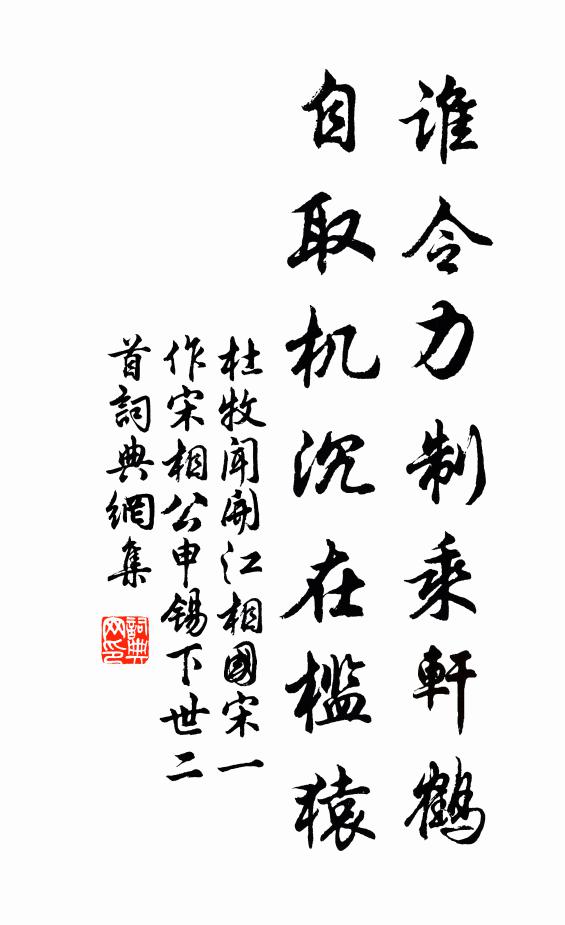 誰令力制乘軒鶴
自取机沉在檻猿
杜牧聞開江相國宋一
作宋相公申錫下世二
首詞典網集
詞典
网印